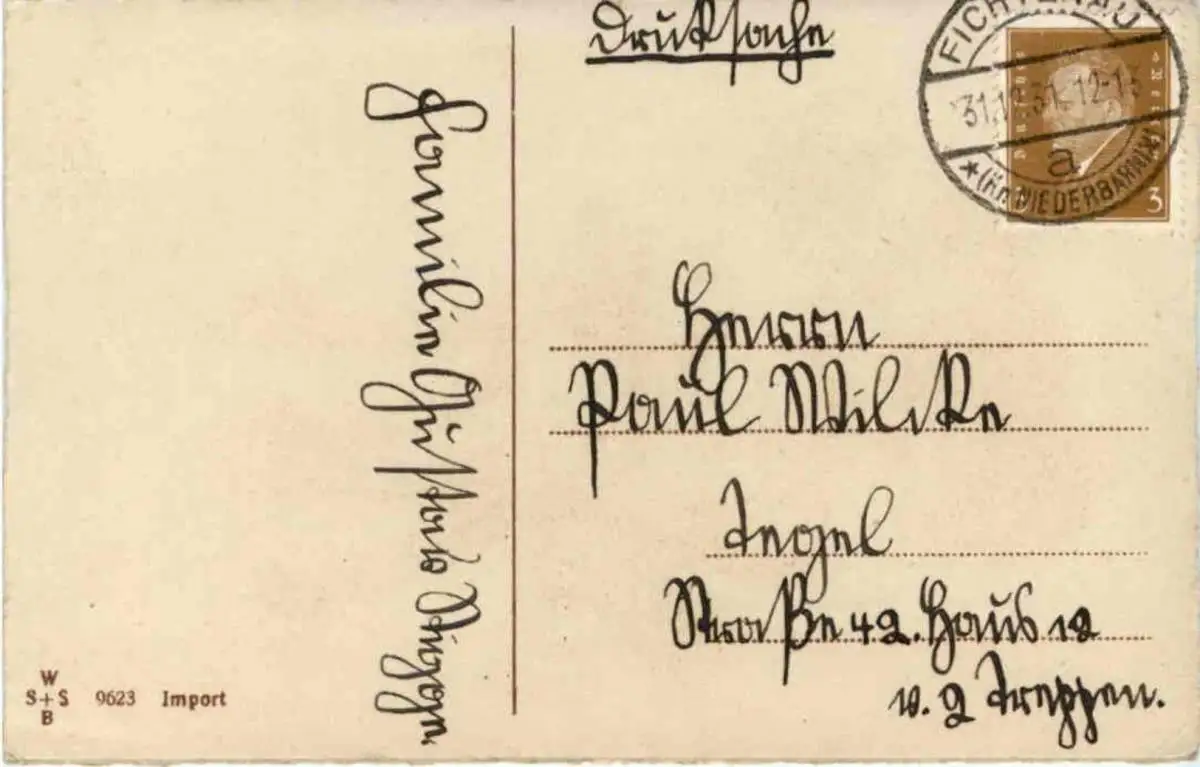 Drucksache
FICHTENAU
31.12.31.12-13
a
* (Kr. NIEDERBARNIM)
3
Familie Gustav
Herrn
Paul Wilcke
Tegel
Straße 42. Haus 12
v. 2 Treppen.
W
S+S 9623 Import
B